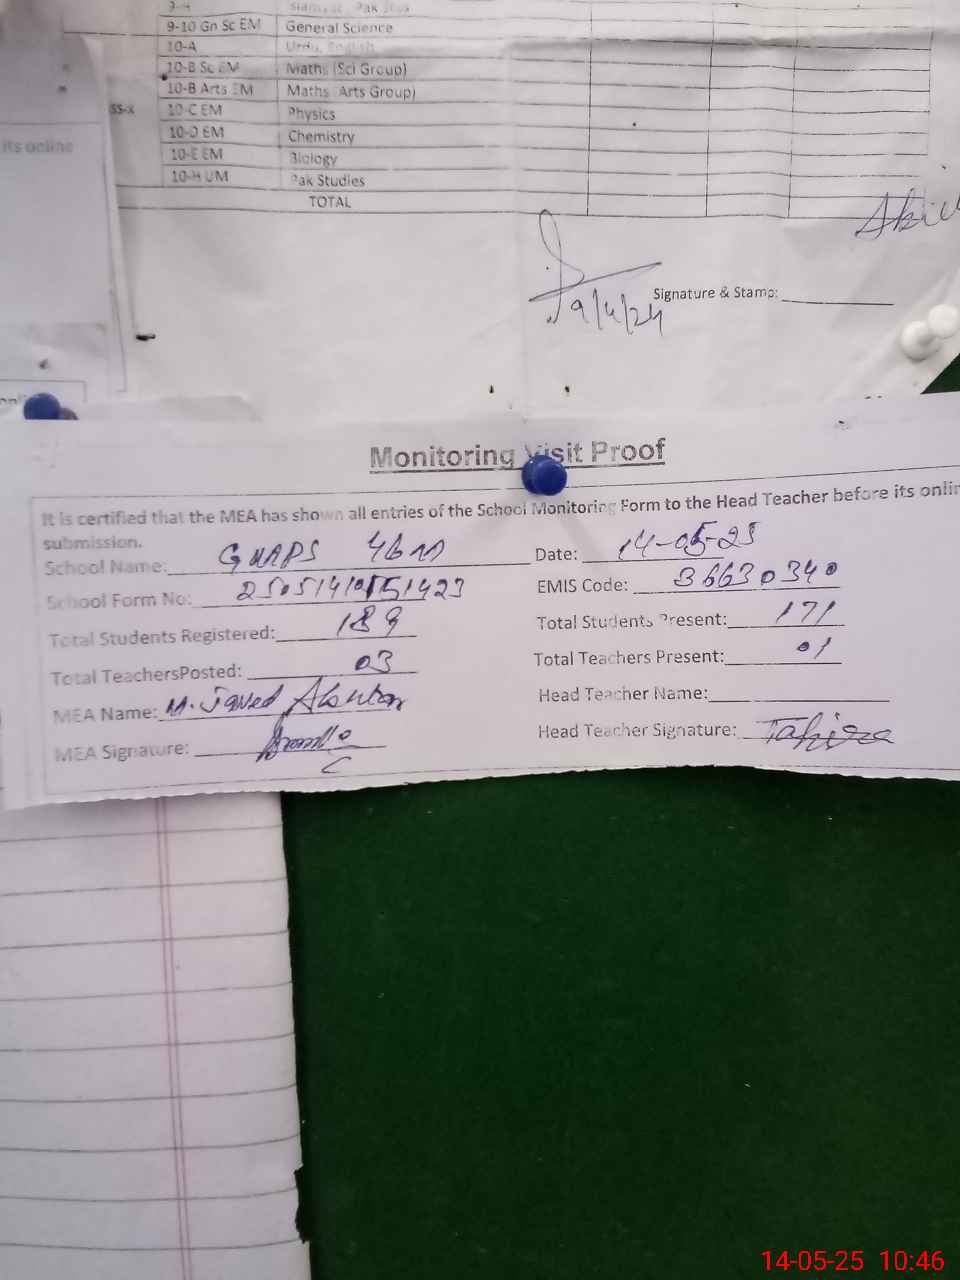 9-10 Gn Sc EM General Science
10-A Urdu, English
10-B Sc EM Maths (Sci Group)
10-B Arts EM Maths (Arts Group)
SS-X 10-C EM Physics
10-D EM Chemistry
10-E EM Biology
10-H UM Pak Studies
TOTAL
its online
Signature & Stamp:
9/4/24
Monitoring Visit Proof
It is certified that the MEA has shown all entries of the School Monitoring Form to the Head Teacher before its onlin
submission.
School Name: 46 Date: 14-05-25
School Form No: EMIS Code: 36630340
Total Students Registered: 189 Total Students Present: 171
Total TeachersPosted: 03 Total Teachers Present: 01
MEA Name: M. Javed Head Teacher Name:
MEA Signature: Head Teacher Signature: Tahira
14-05-25 10:46